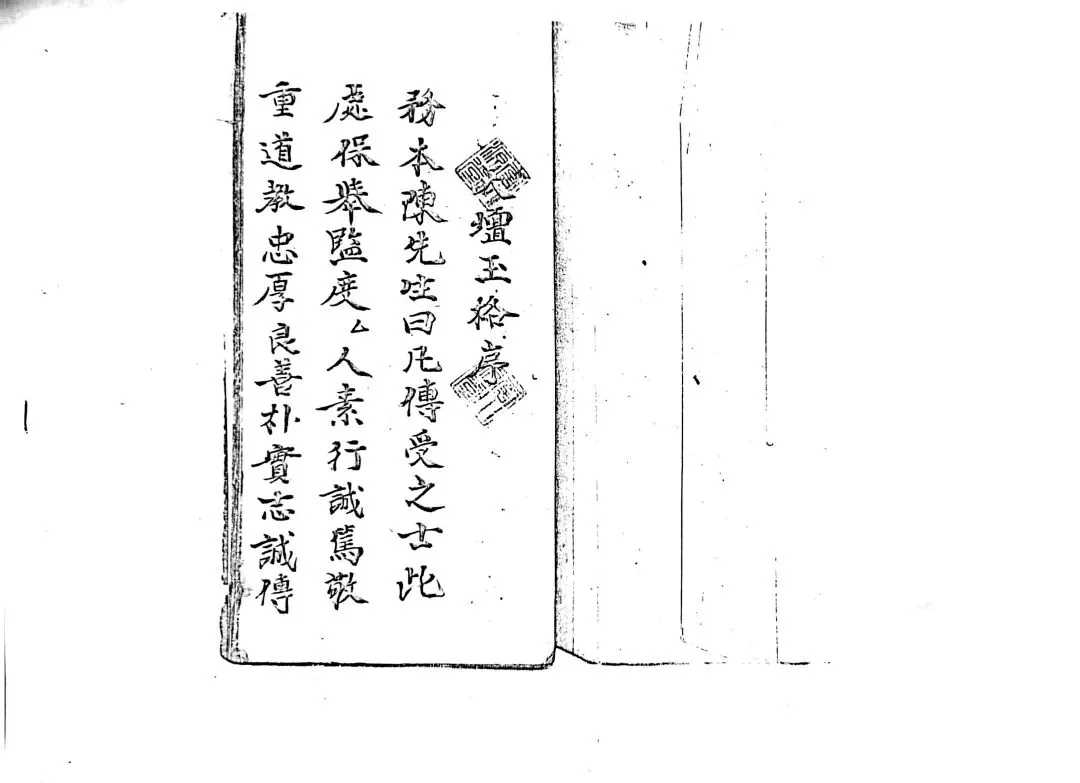 壇玉格序
務本陳先生曰凡傳受之士此
處保舉監度厶人素行誠篤敬
重道教忠厚良善朴實志誠傳